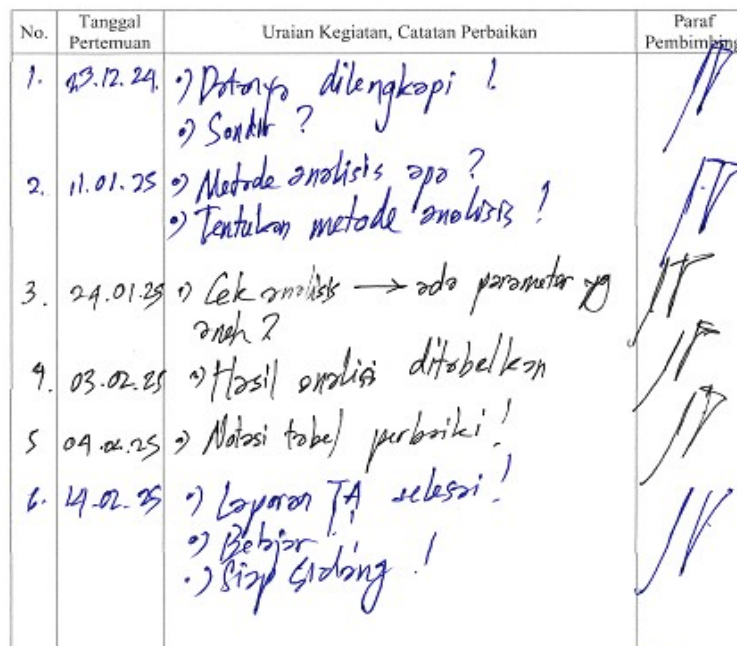 No. Tanggal Pertemuan Uraian Kegiatan, Catatan Perbaikan Paraf Pembimbing
1. 23.12.24. •) Datanya dilengkapi !
•) Sondir ?
2. 11.01.25 •) Metode analisis apa ?
•) Tentukan metode analisis !
3. 24.01.25 •) Cek analisis → ada parameter yg
aneh ?
4. 03.02.25 •) Hasil analisi ditabelkan
5 04.02.25 •) Notasi tabel perbaiki !
6. 14.02.25 •) Laporan TA selesai !
•) Belajar !
•) Siap sidang !